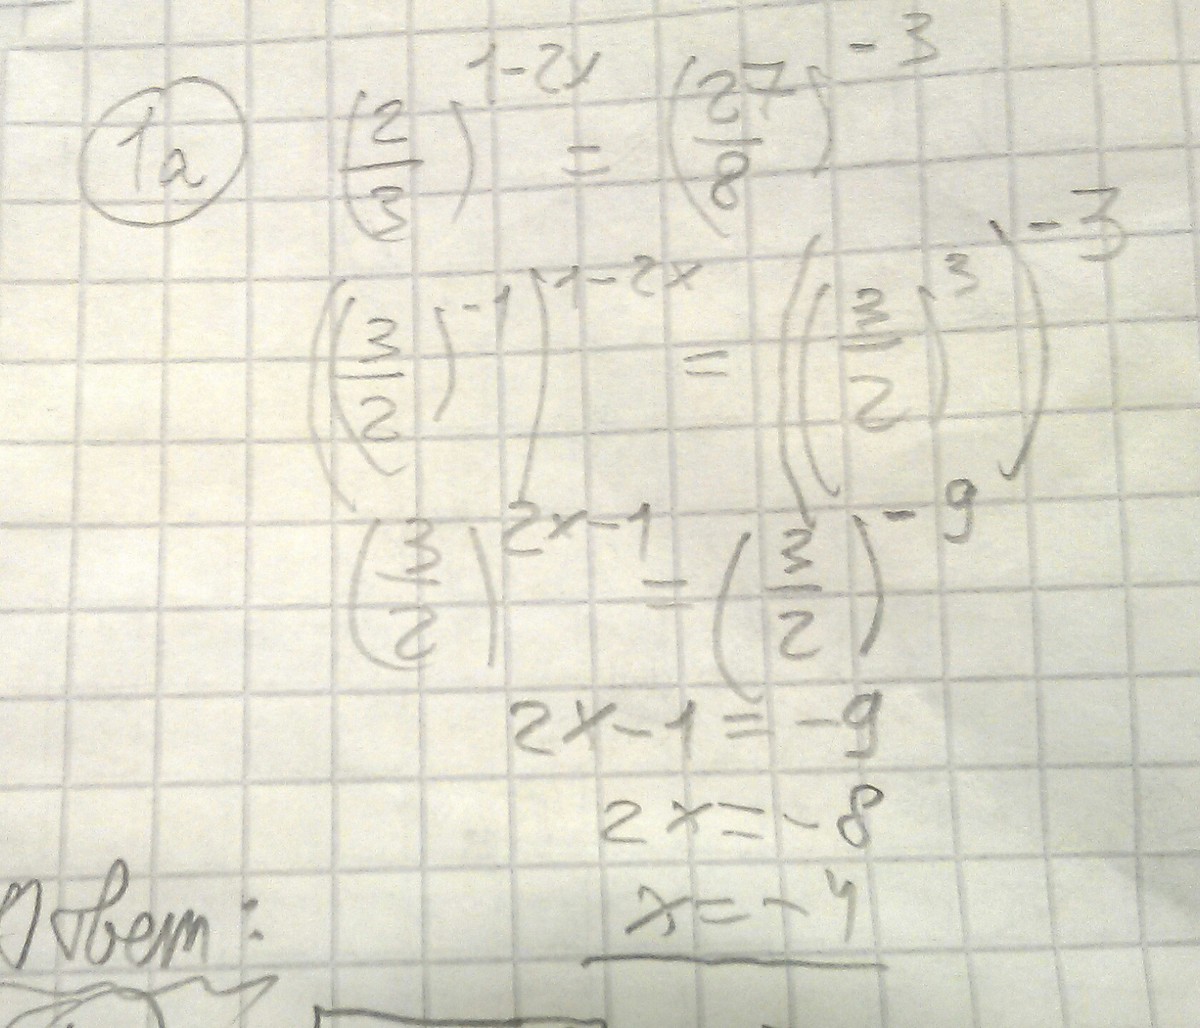 1a (2/3)^(1-2x) = (27/8)^(-3)
((3/2)^(-1))^(1-2x) = ((3/2)^3)^(-3)
(3/2)^(2x-1) = (3/2)^(-9)
2x-1=-9
2x=-8
Ответ: x=-4